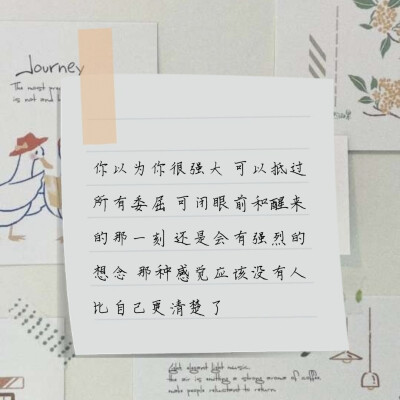 Journey
The most
is not and
你以为你很强大 可以抵过
所有委屈 可闭眼前和醒来
的那一刻 还是会有强烈的
想念 那种感觉应该没有人
比自己更清楚了
elegant light music
the air is emitting a strong aroma of coffee
make people reluctant to return